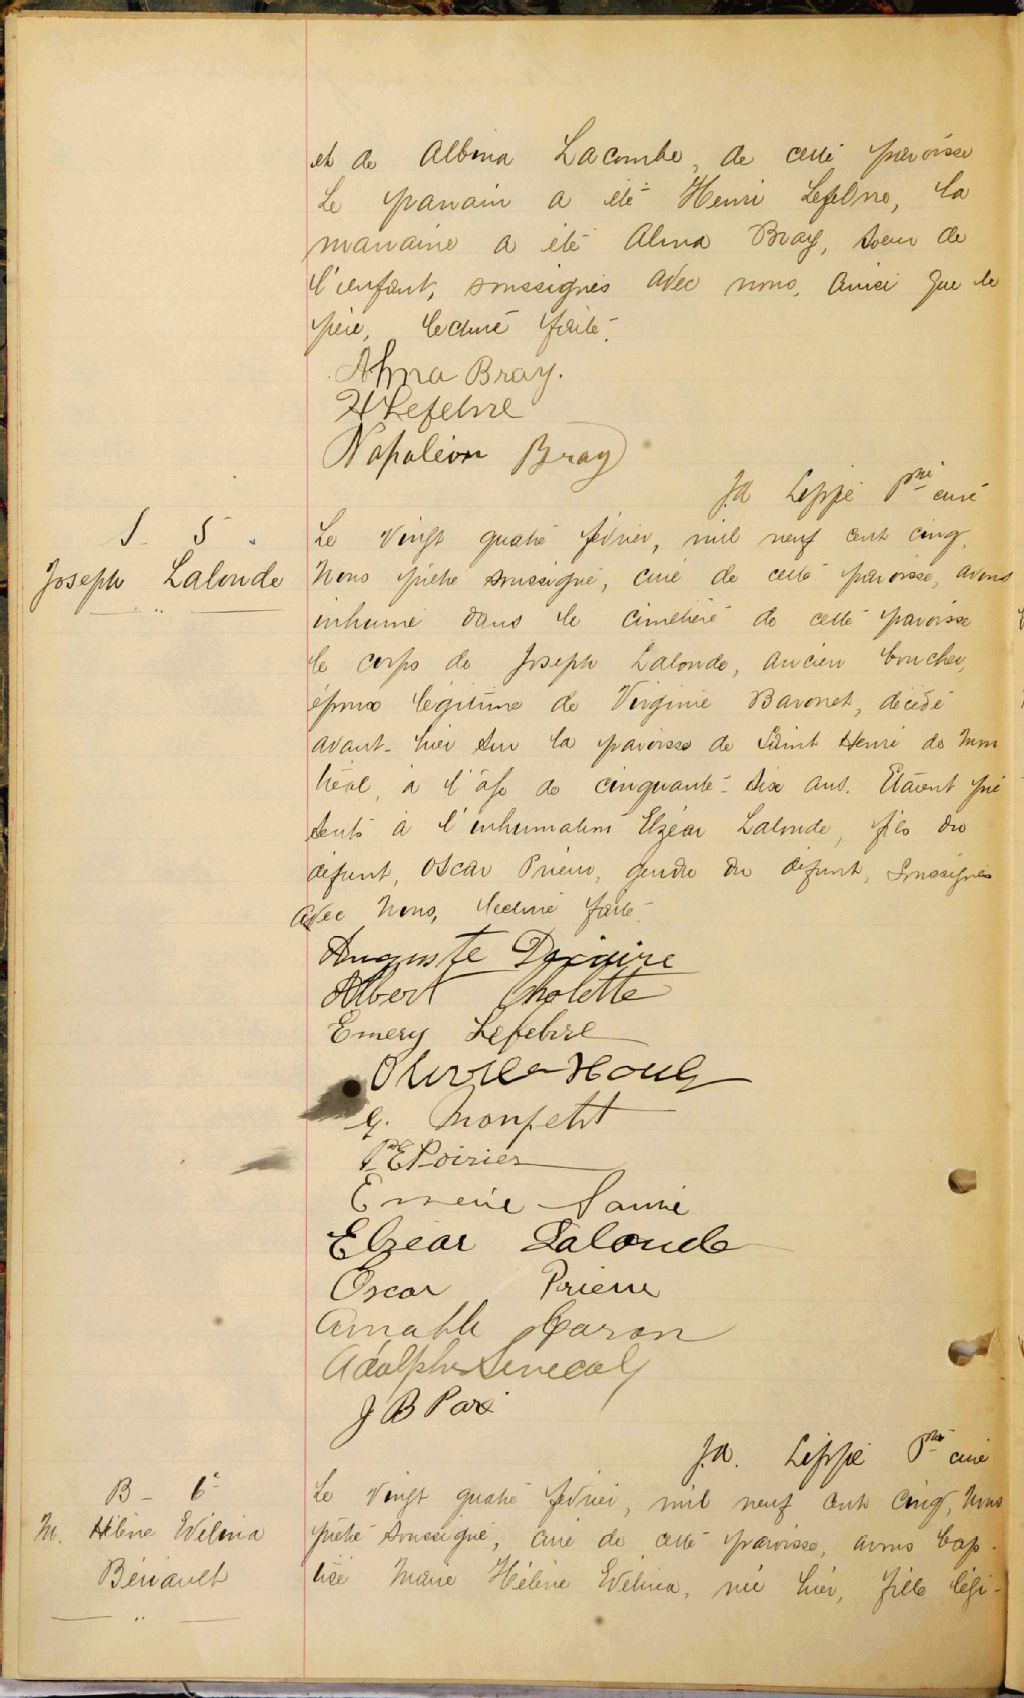 et de Albina Lacombe, de cette paroisse
Le parrain a été Henri Lefebvre, la
marraine a été Alma Bray, soeur de
l'enfant, soussignés avec nous, ainsi que le
père, lecture faite.
Alma Bray.
H Lefebvre
Napoléon Bray
J.A. Lippé Ptre curé
S. 5
Joseph Lalonde
Le vingt quatre février, mil neuf cent cinq,
Nous prêtre soussigné, curé de cette paroisse, avons
inhumé dans le cimetière de cette paroisse
le corps de Joseph Lalonde, ancien boucher,
époux légitime de Virginie Baronet, décédé
avant-hier sur la paroisse de Saint Henri de Mon
tréal, à l'âge de cinquante-six ans. Etaient pré
sents à l'inhumation Elzéar Lalonde, fils du
défunt, Oscar Prieur, gendre du défunt, soussignés
avec Nous, lecture faite.
Auguste
Albert Cholette
Emery Lefebvre
Olivier Houle
G. Monpetit
E Poirier
Elzéar Lalonde
Oscar Prieur
Amable Caron
Adolphe Senecal
J B Paré
J.A. Lippé Ptre curé
B - 6
M. Hélène Evélina
Bériault
Le vingt quatre février, mil neuf cent cinq, Nous
prêtre soussigné, curé de cette paroisse, avons bap-
tisé Marie Hélène Evélina, née hier, fille légi-